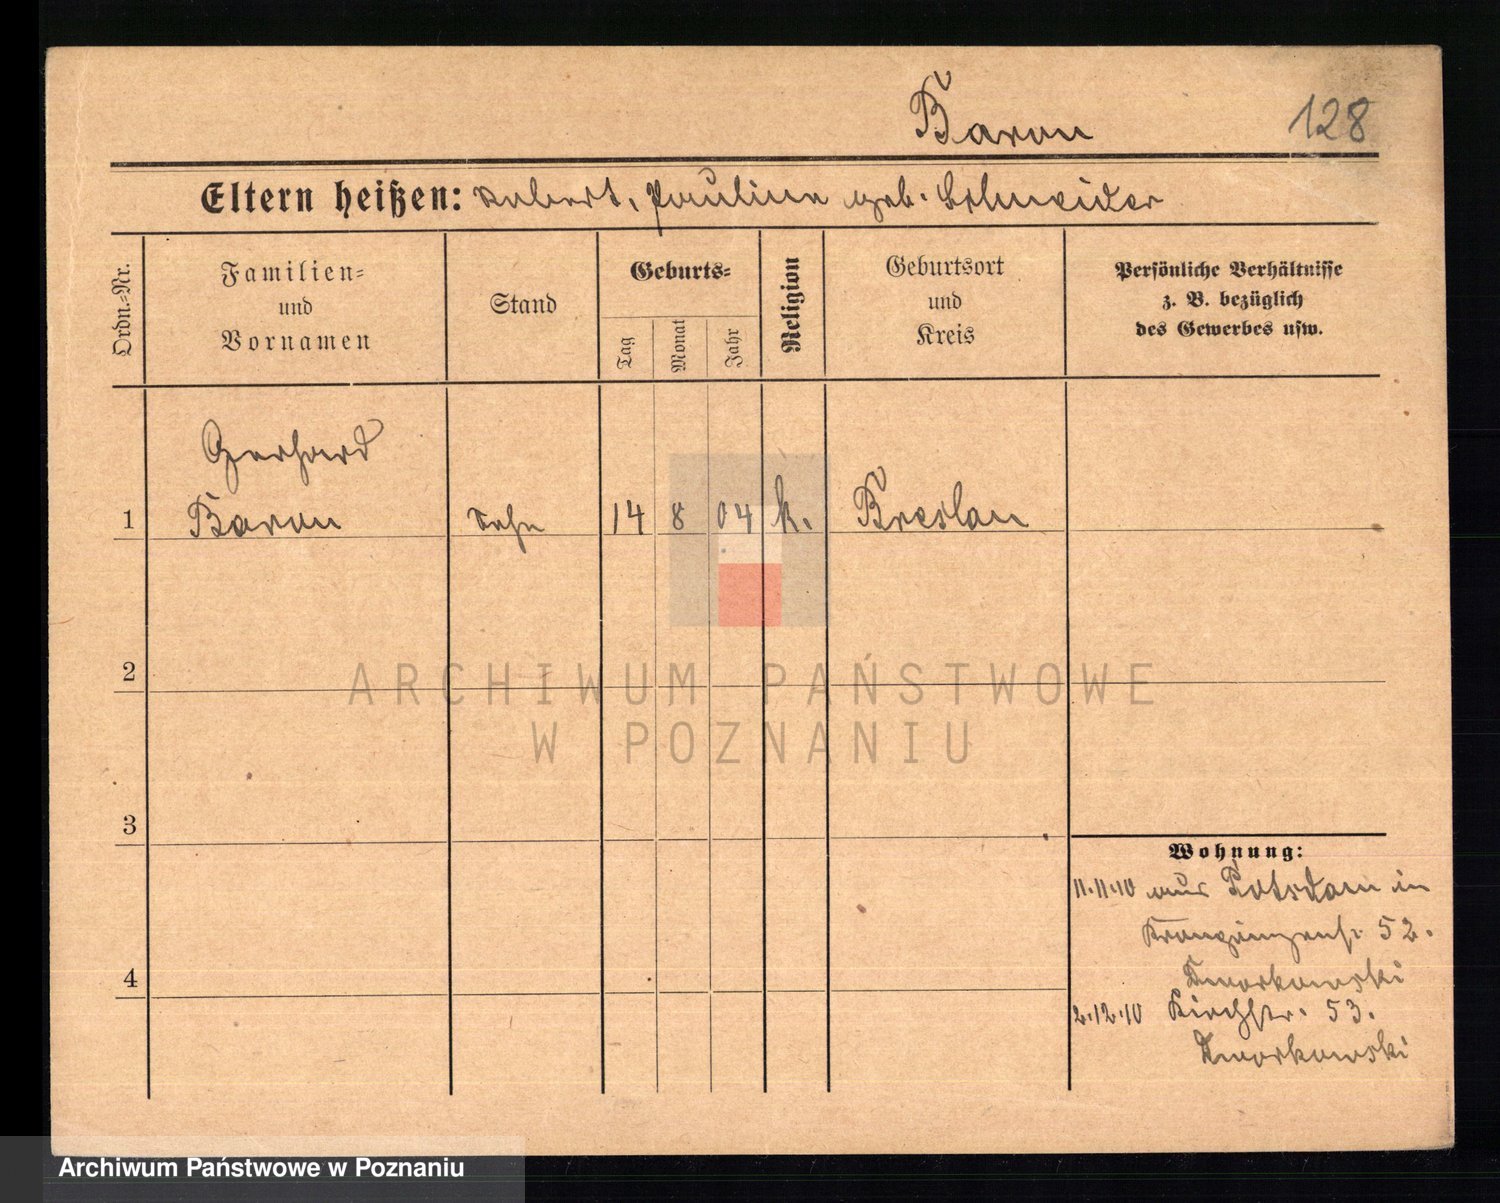 Baron
128
Eltern heißen: Robert, Pauline geb. Schneider
Ordn.-Nr.
Familien-
und
Vornamen
Stand
Geburts-
Tag
Monat
Jahr
Religion
Geburtsort
und
Kreis
Persönliche Verhältnisse
z. B. bezüglich
des Gewerbes usw.
Gerhard
1 Baron Sohn 14 8 04 k. Breslau
2
3
4
Wohnung:
11.11.10 aus Potsdam in
52.
Dworkowski
2.12.10 Kirchstr. 53.
Dworkowski
ARCHIWUM PAŃSTWOWE
W POZNANIU
Archiwum Państwowe w Poznaniu